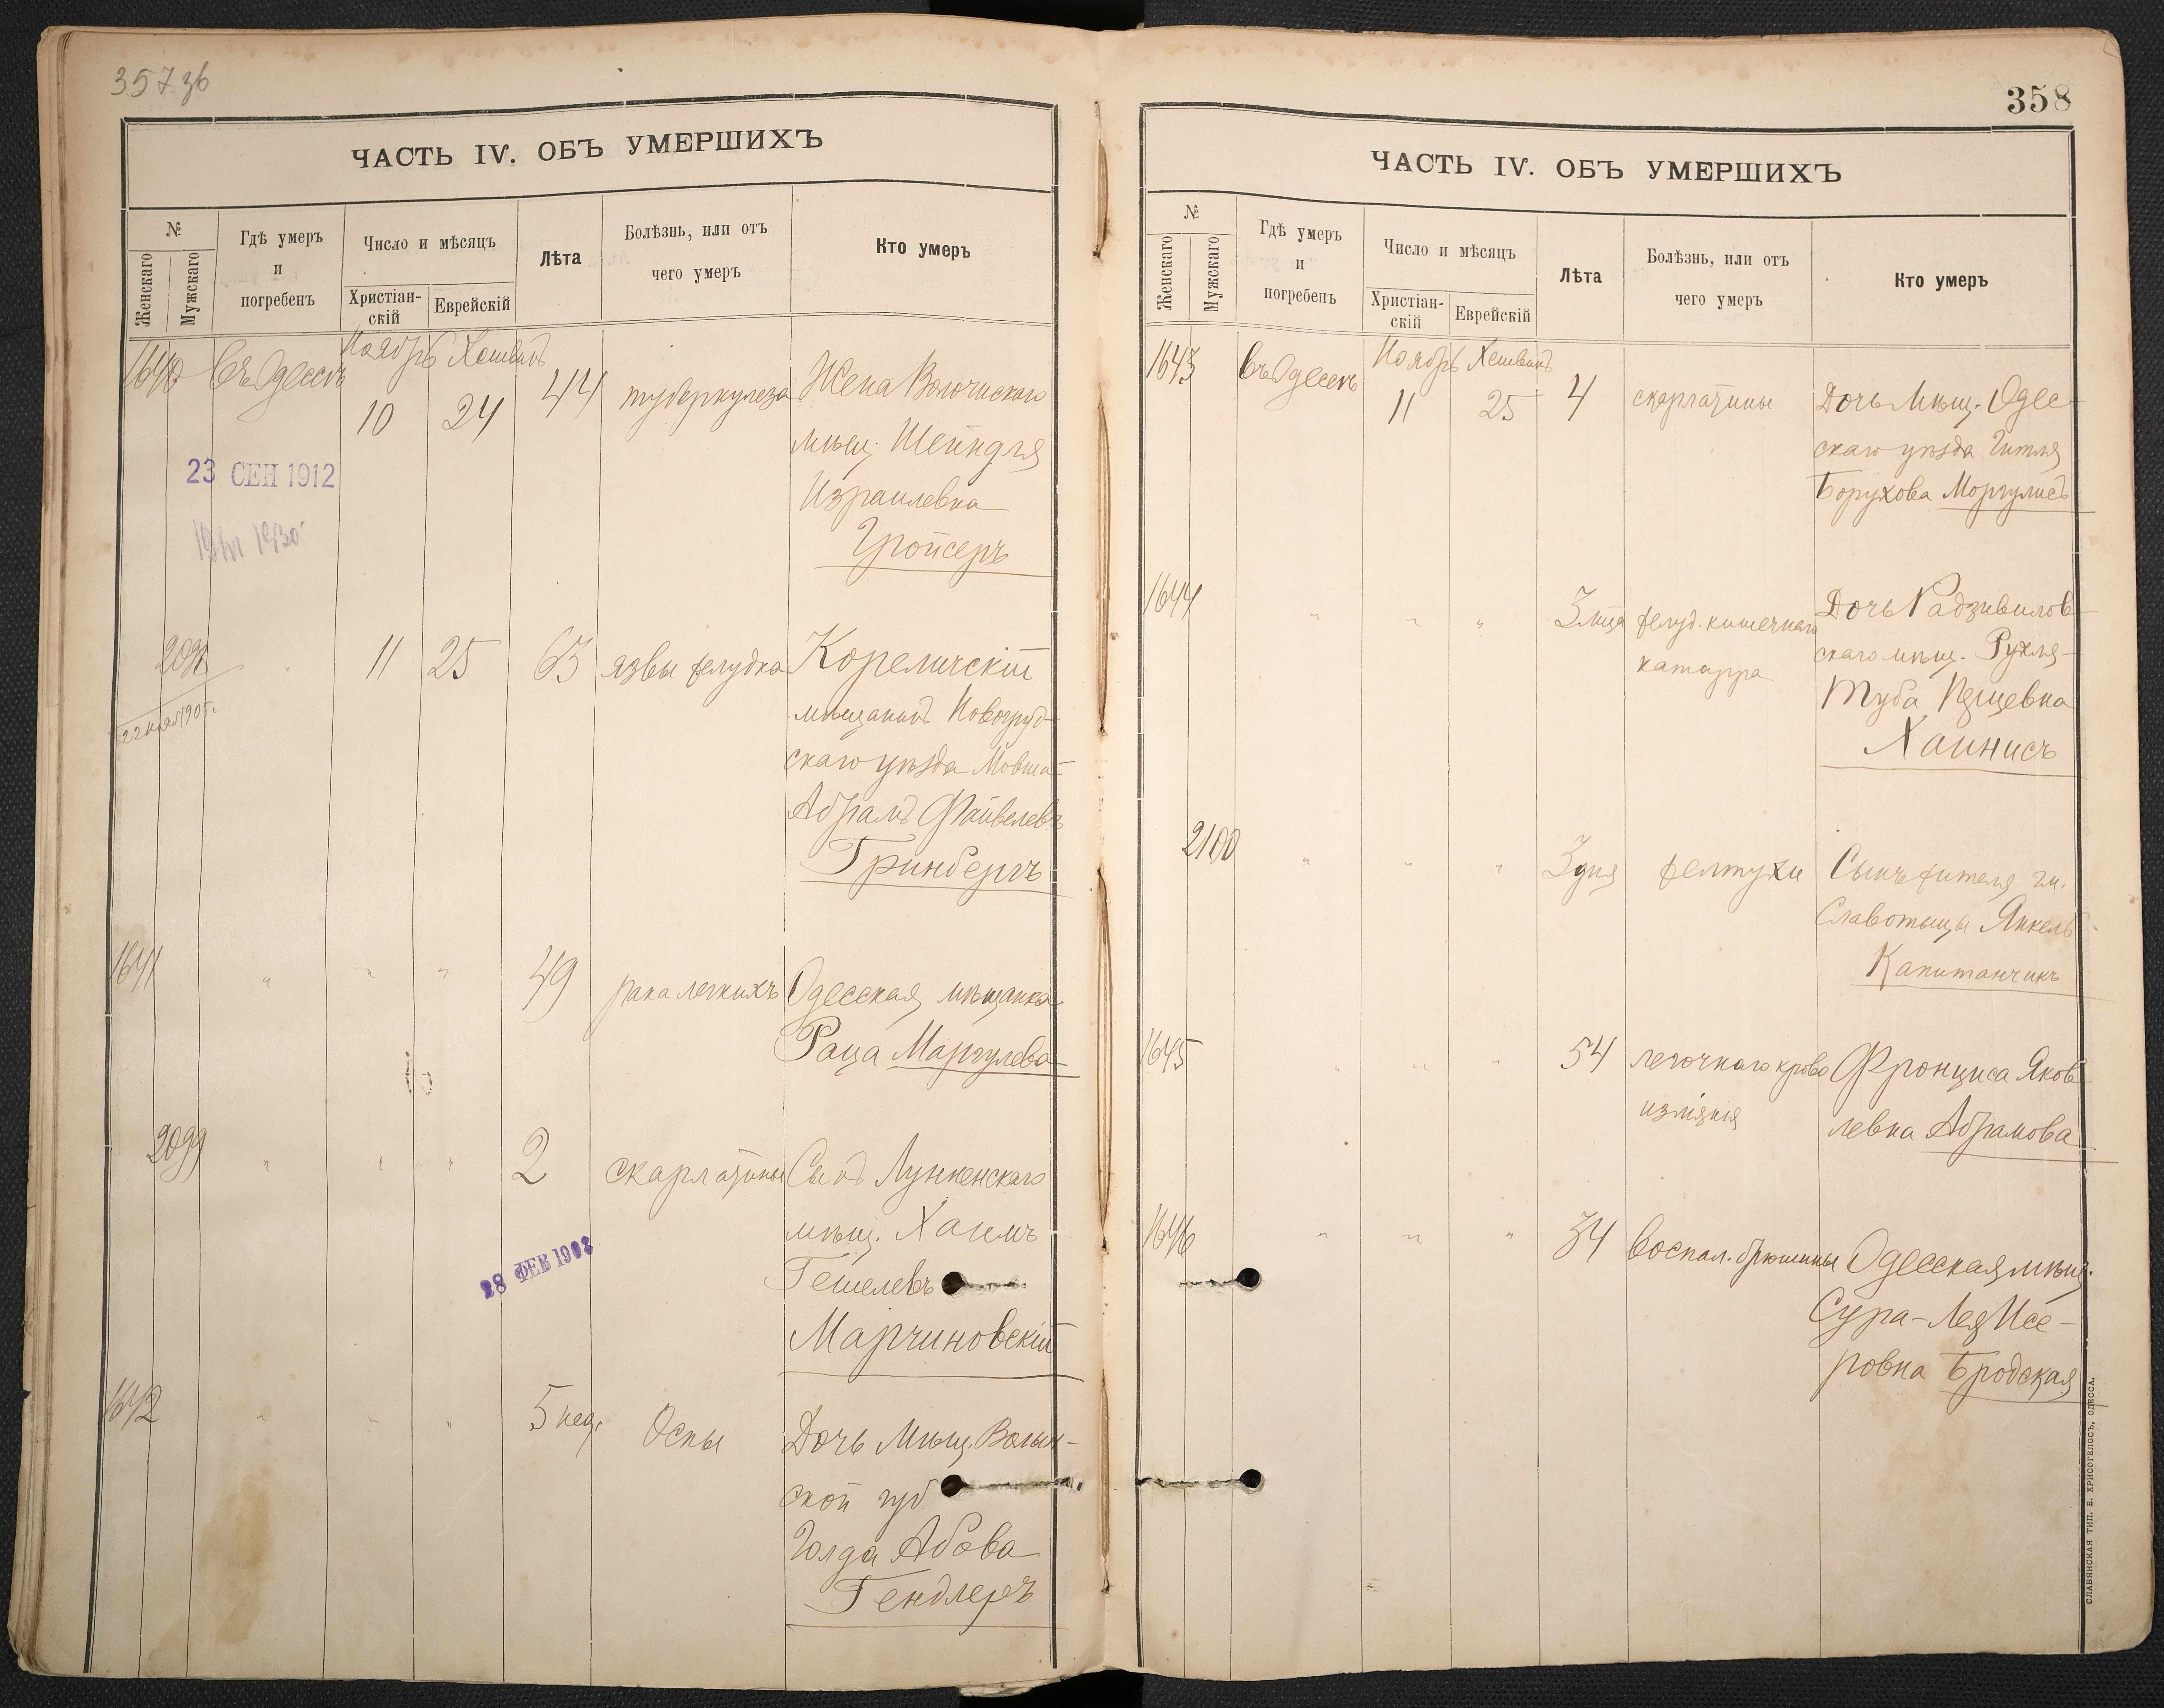 357 зб
ЧАСТЬ IV. ОБЪ УМЕРШИХЪ
№
Женскаго
Мужскаго
Гдѣ умеръ
и
погребенъ
Число и мѣсяцъ
Христіан-
скій
Еврейскій
Лѣта
Болѣзнь, или отъ
чего умеръ
Кто умеръ
1640 Въ Одессѣ Ноябрь Хешвинъ
10 24 44 туберкулеза Жена Волочискаго
мѣщ. Шейндля
Израилевна
Гройсеръ
23 СЕН 1912
2098 " 11 25 63 язвы желудка Кореличскій
мѣщанинъ Новогруд-
скаго уѣзда Мовша-
Абрамъ Файвелевъ
Гринбергъ
1641 " " " 49 рака легкихъ Одесская мѣщанка
Раца Маргулева
2099 " " " 2 скарлатины Сынъ Лункенскаго
мѣщ. Хаимъ
Гешелевъ
Марчиновскій
28 ФЕВ 1903
1642 " " " 5 нед. Оспы Дочь Мѣщ. Волын-
ской губ.
Голда Абова
Гендлеръ
358
ЧАСТЬ IV. ОБЪ УМЕРШИХЪ
№
Женскаго
Мужскаго
Гдѣ умеръ
и
погребенъ
Число и мѣсяцъ
Христіан-
скій
Еврейскій
Лѣта
Болѣзнь, или отъ
чего умеръ
Кто умеръ
1643 Въ Одессѣ Ноябрь Хешвинъ
11 25 4 скарлатины Дочь Мѣщ. Одес-
скаго уѣзда Гитля
Борухова Моргулисъ
1644 " " " 3 мца желуд. кишечнаго
катарра
Дочь Радзивилов-
скаго мѣщ. Рухля-
Туба
Хаинисъ
2100 " " " 3 дня желтухи Сынъ жителя гм.
Славотыцы Янкель
Капитанчикъ
1645 " " " 54 легочнаго крово
излиянія
Фронциса Яков-
левна Абрамова
1646 " " " 34 воспал. брюшины Одесская мѣщ.
Сура-Лея Исе-
ровна Бродская
СЛАВЯНСКАЯ ТИП. Е. ХРИСОГЕЛОСЪ, ОДЕССА.